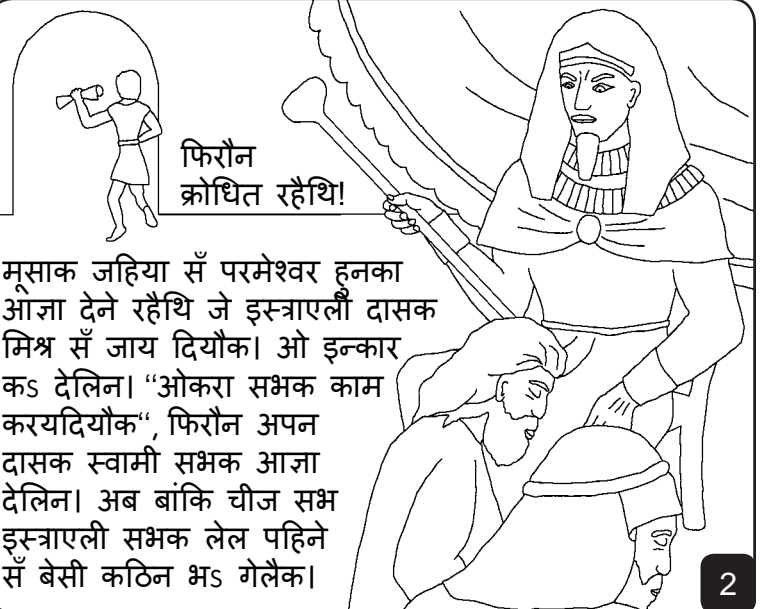 फिरौन
क्रोधित रहैथि!
मूसाक जहिया सँ परमेश्वर हुनका
आज्ञा देने रहैथि जे इस्त्राएली दासक
मिश्र सँ जाय दियौक। ओ इन्कार
कऽ देलिन। “ओकरा सभक काम
करयदियौक“, फिरौन अपन
दासक स्वामी सभक आज्ञा
देलिन। अब बांकि चीज सभ
इस्त्राएली सभक लेल पहिने
सँ बेसी कठिन भऽ गेलैक।
2